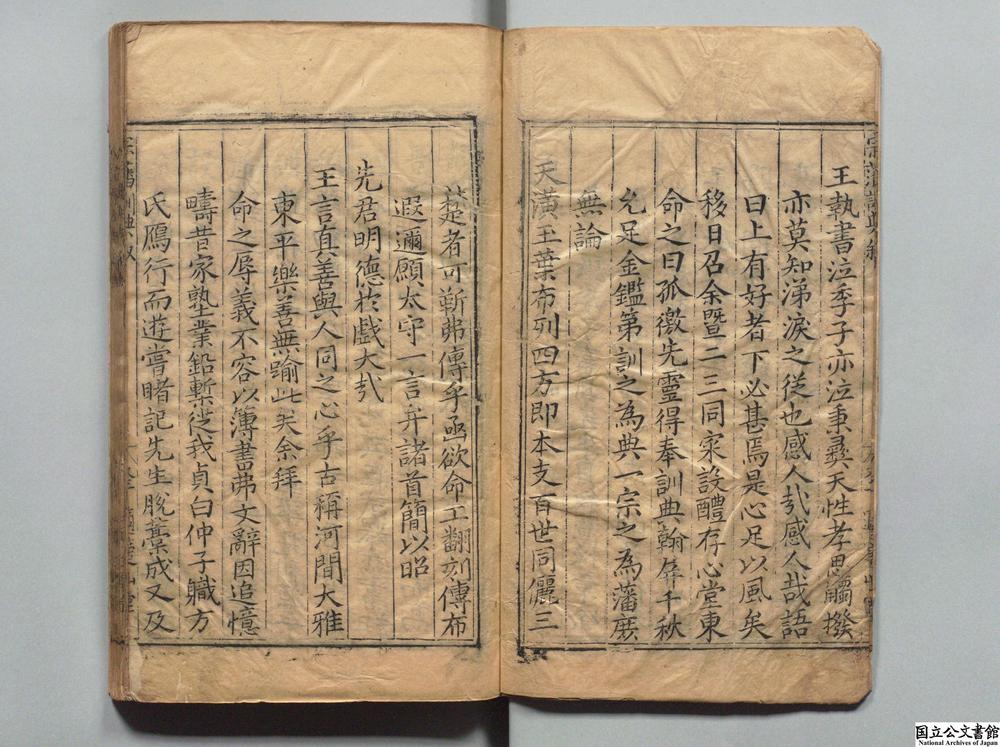 王執書泣季子亦泣秉彞天性孝思觸撥
亦莫知涕淚之從也感人㢤感人哉語
曰上有好者下必甚焉是心足以風矣
移日召余暨二三同宷設醴存心堂東
命之曰孤徼先靈得奉訓典翰屏千秋
允足金鑑第訓之為典一宗之為藩庶
無論
天潢王葉布列四方即本支百世同儷三
楚者可靳弗傳乎亟欲命工翻刻傳布
遐邇願太守一言弁諸首簡以昭
先君明德於戲大㢤
王言真善與人同之心乎古稱河間大雅
東平樂善無踰此矣余拜
命之辱義不容以簿書弗文辭因追憶
疇昔家塾業鉛槧從我貞白仲子職方
氏鴈行而遊嘗睹記先生脫藁成又及
国立公文書館
National Archives of Japan